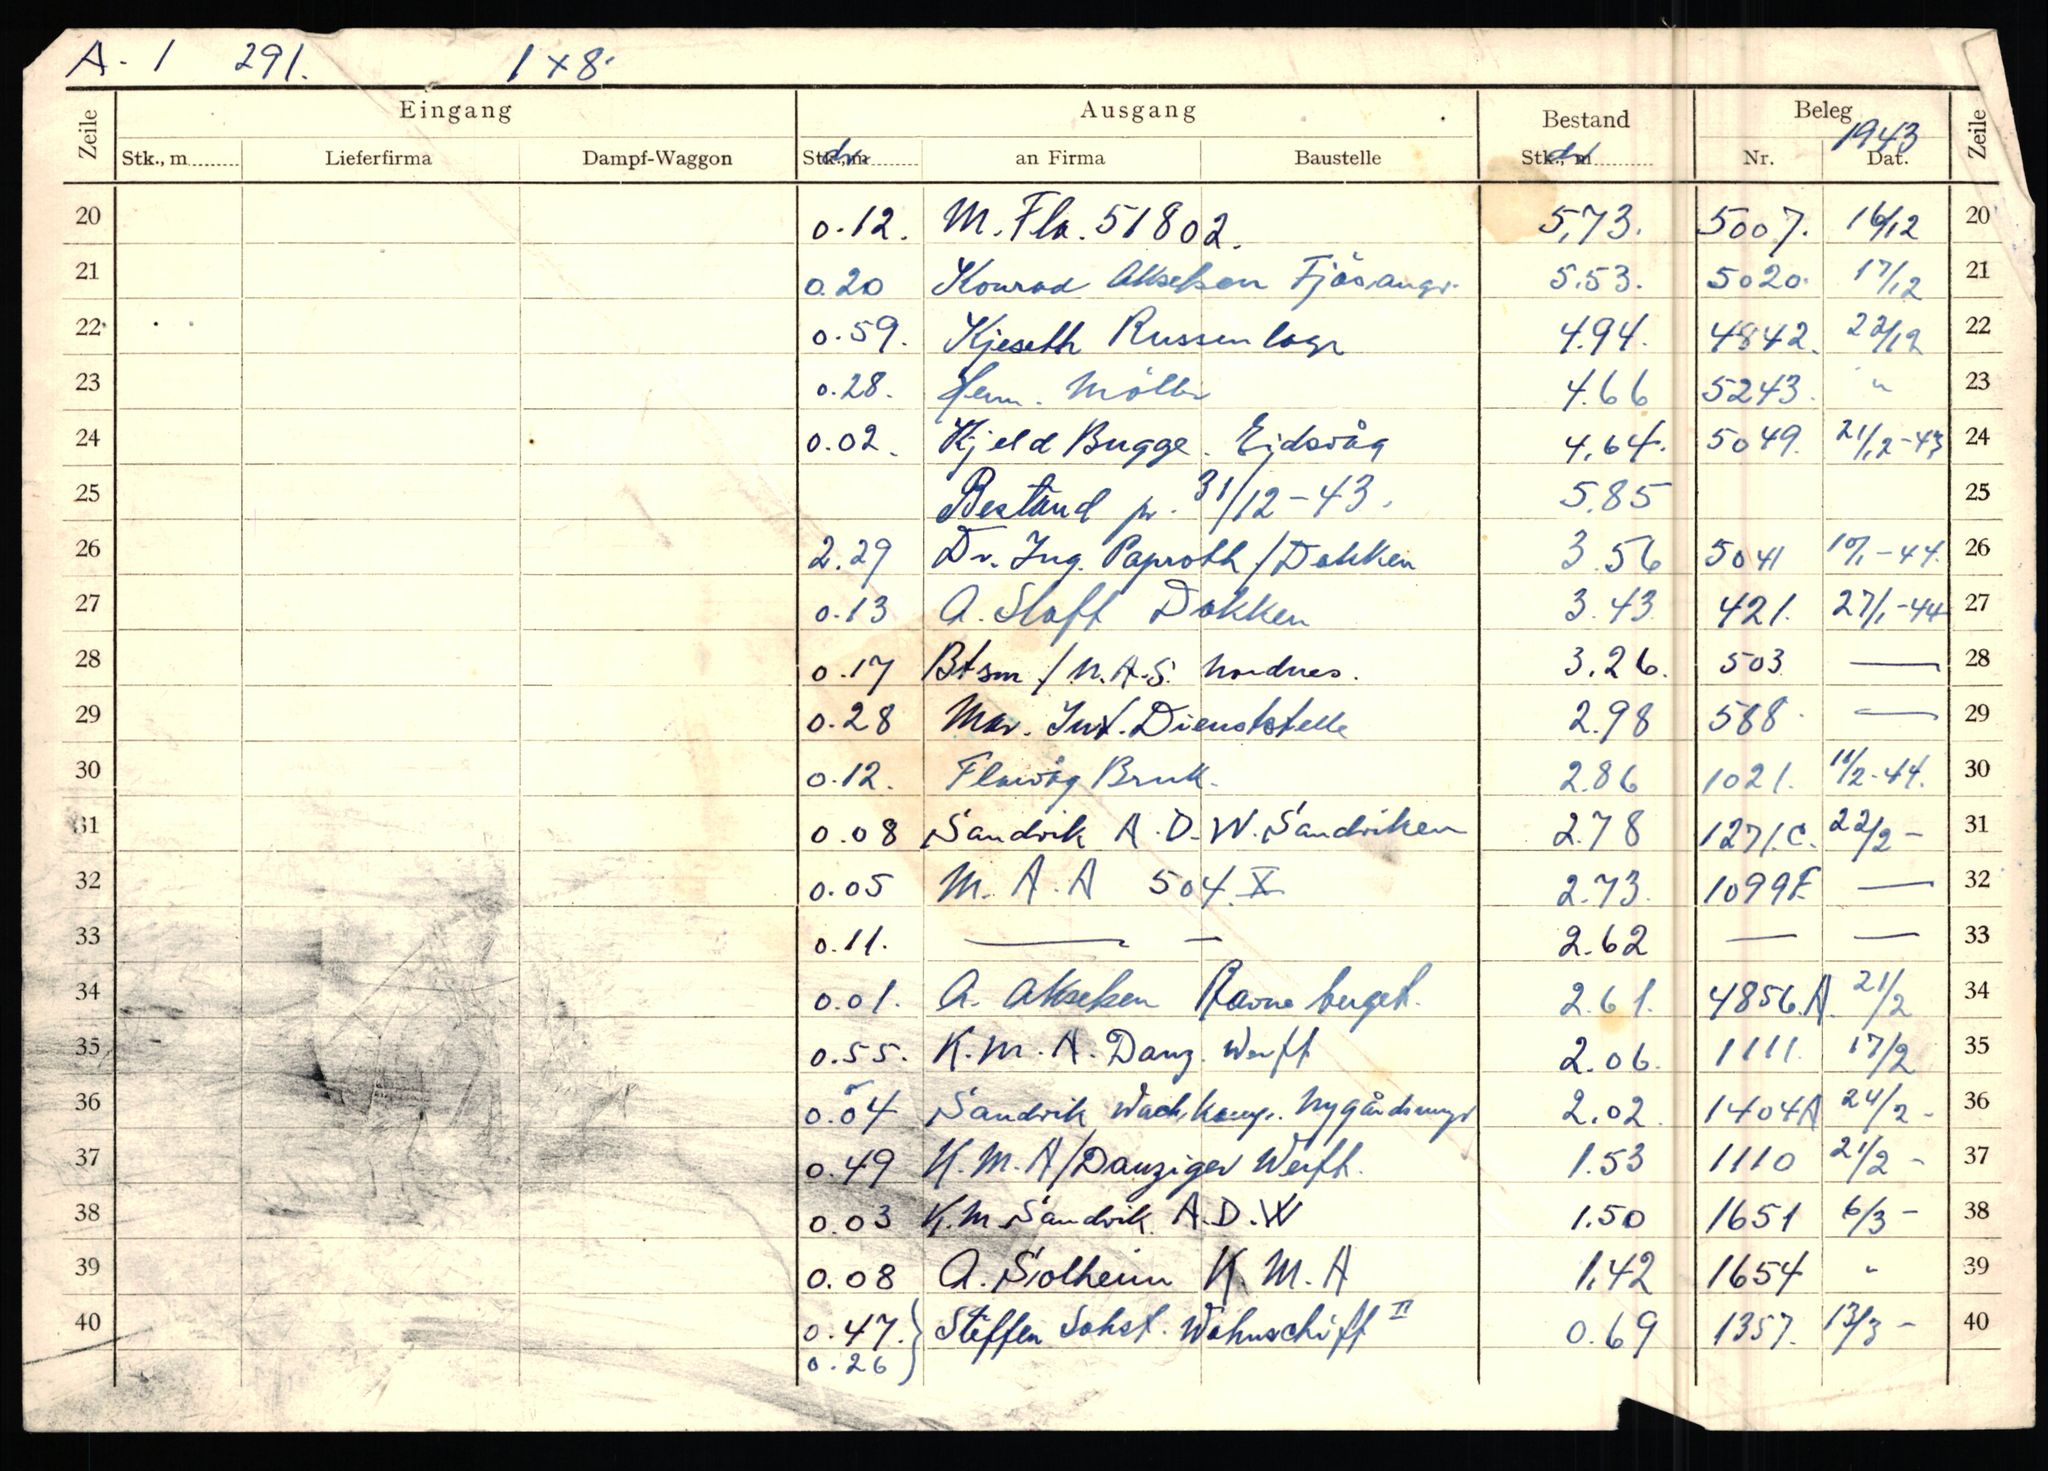 A. 1 291. 1 x 8.
Zeile Eingang Ausgang Bestand Beleg Zeile
1943
Stk., m Lieferfirma Dampf-Waggon Stk., m an Firma Baustelle Stk., m Nr. Dat.
20 0.12. M. Fla. 51802. 5,73. 5007. 16/12 20
21 0.20 Konrad Akselsen Fjösangr. 5.53. 5020. 17/12 21
22 0.59. Kjeseth Russenlagr 4.94. 4842. 22/12 22
23 0.28. Herm. Möller 4.66 5243. " 23
24 0.02. Kjeld Bugge. Eidsvåg 4.64. 5049. 21/12-43 24
25 Bestand pr. 31/12-43. 5.85 25
26 2.29 Dr. Ing. Paproth / Dokken 3.56 5041 10/1-44. 26
27 0.13 A. Sloft Dokken 3.43 421. 27/1-44 27
28 0.17 Btsm / N.A.S. Nordnes. 3.26. 503 — 28
29 0.28 Mar. Int. Dienststelle 2.98 588. — 29
30 0.12. Flavåg Bruk. 2.86 1021. 11/2-44. 30
31 0.08 Sandvik A.D.W. Sandviken 2.78 1271.C. 22/2 - 31
32 0.05 M.A.A 504. X 2.73. 1099F. — 32
33 0.11. — — 2.62 — — 33
34 0.01. A. Akselsen Ravneberget. 2.61. 4856.A 21/2 34
35 0.55. K.M.A. Danz. Werft 2.06. 1111. 17/2 35
36 0.04 Sandvik Wach.komp. Nygårdsmyr 2.02. 1404A 24/2 - 36
37 0.49 K.M.A/Danziger Werft. 1.53 1110 21/2 - 37
38 0.03 K.M. Sandvik A.D.W 1.50 1651 6/3 - 38
39 0.08 A. Solheim K.M.A 1.42 1654 " 39
40 0.47.} Steffen Sohst. Wohnschiff II 0.69 1357. 13/3 - 40
0.26